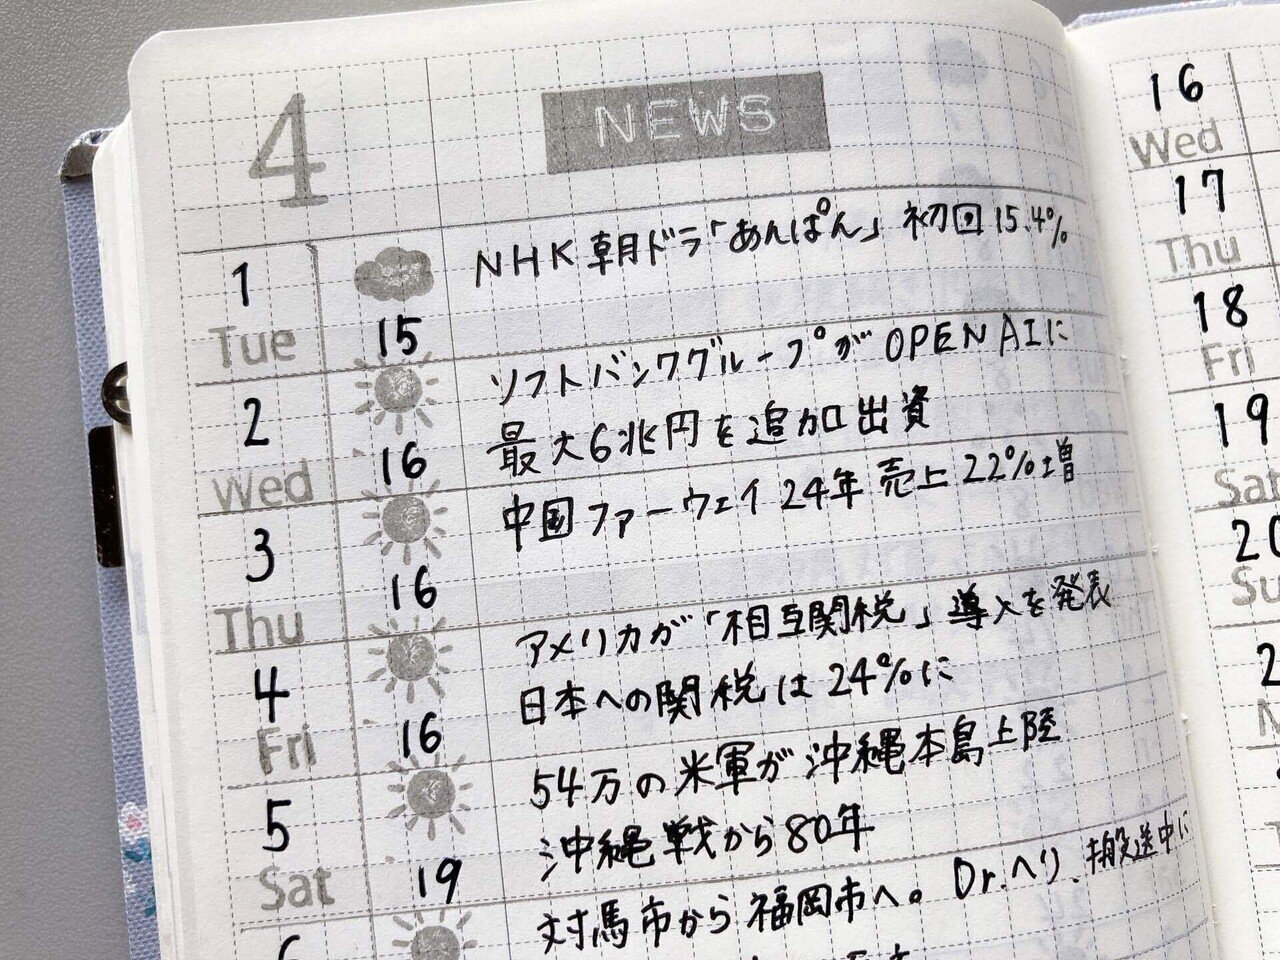 4
NEWS
1
Tue
15
NHK 朝ドラ「あんぱん」 初回 15.4%
2
Wed
16
ソフトバンクグループがOPEN AIに
最大6兆円を追加出資
3
Thu
16
中国ファーウェイ 24年 売上 22%増
4
Fri
16
アメリカが「相互関税」導入を発表
日本への関税は24%に
5
Sat
19
54万の米軍が沖縄本島上陸
沖縄戦から80年
6
対馬市から福岡市へ。Dr.ヘリ、搬送中に
16
Wed
17
Thu
18
Fri
19
Sat
20
Su
2